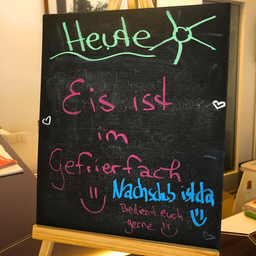 Heute
Eis ist
im
Gefrierfach
Nachschub ist da
Bedient euch
gerne